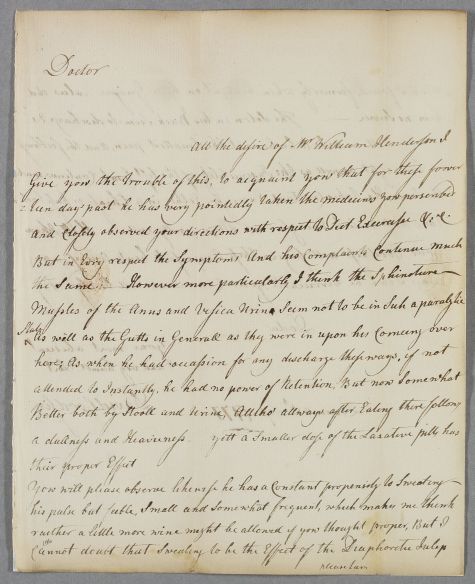 Doctor
Att the desire of Mr William Henderson I
Give yow the trouble of this, to acquaint yow that for these fower
=teen days past he has very pointedly taken the medicins yow perscribed
And Closly observed your directions with respect to Diet Excercise &c. &c.
But in Evry respect the Symptoms And his Complaints Continue much
the Same. However more particularly I think the Sphincture
Mussles of the Anus and Vesica Urina Seem not to be in Such a paralytic
State
As well as the Gutts in Generall as they were in upon his Comeing over
here; As when he had occassion for any discharge these ways, if not
attended to Instantly, he had no power of Retention, But now Somewhat
Better both by Stooll and Urine, Altho allways after Eating there follows
a dullness and Heaveness yett a Smaller dose of the Laxative pills has
their proper Effect
Yow will please observe likewise he has a Constant propensity to Sweating
his pulse but feeble, Small and Somewhat frequent, which makes me think
raether a little more wine might be allowed if yow thought proper, But I
Cannot doubt that Sweating to be the Effect of the Diaphoretic Julap